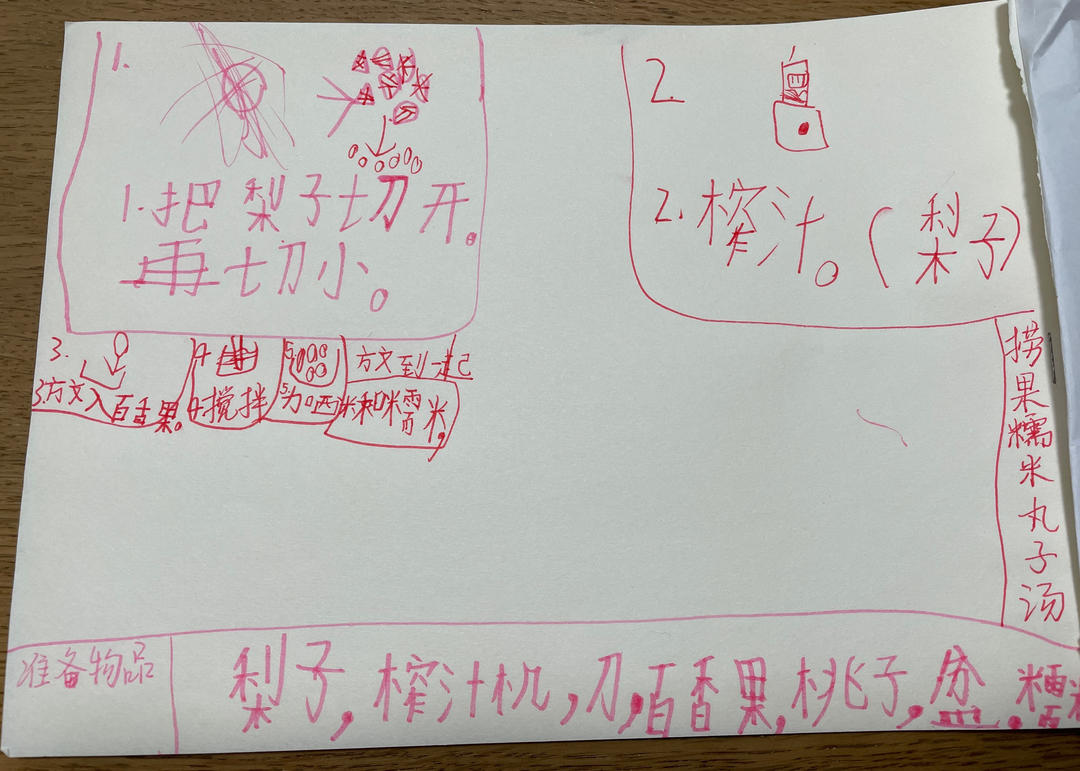 1.
1.把梨子切开。
再切小。
2.
2.榨汁。(梨子)
3.
3放入百香果。
4
4搅拌
5.
5.加西
米和咪雪米。
放到一起
捞果糯米丸子汤
准备物品
梨子,榨汁机,刀,百香果,桃子,盆.糯